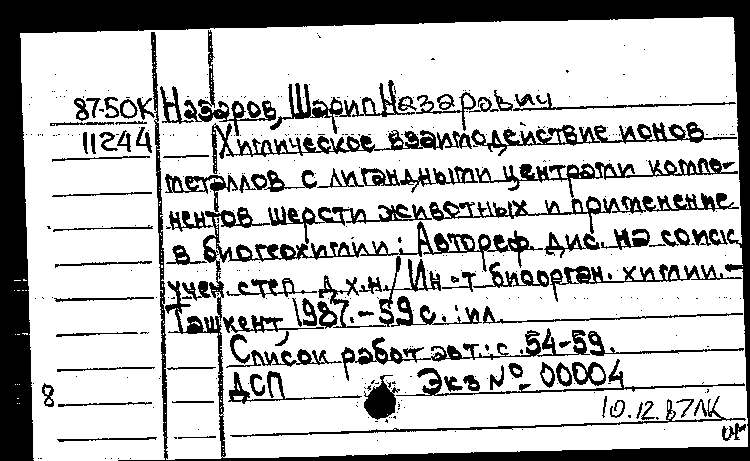 87-5ОК Назаров, Шарип Назарович
11244 Химическое взаимодействие ионов
металлов с лигандными центрами компо-
нентов шерсти животных и применение
в биогеохимии: Автореф. дис. на соиск.
учен. степ. д.х.н./Ин-т биоорган. химии.-
Ташкент, 1987.-59 с.:ил.
Список работ авт.: с. 54-59.
8 ДСП Экз № 00004.
10.12.87ЛК